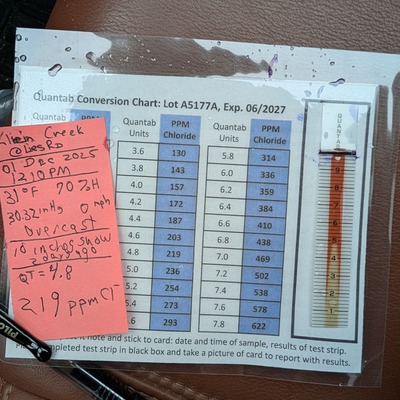 Quantab Conversion Chart: Lot A5177A, Exp. 06/2027
Creek
01 Dec 2025
1210 PM
31°F 70%H
30.32inHg 0 mph
Overcast
10 inches snow
2 days ago
QT = 4.8
219 ppm Cl-
Quantab Units PPM Chloride
3.6 130
3.8 143
4.0 157
4.2 172
4.4 187
4.6 203
4.8 219
5.0 236
5.2 254
5.4 273
5.6 293
Quantab Units PPM Chloride
5.8 314
6.0 336
6.2 359
6.4 384
6.6 410
6.8 438
7.0 469
7.2 502
7.4 538
7.6 578
7.8 622
QUANTAB
9
8
7
6
5
4
3
2
1
it note and stick to card: date and time of sample, results of test strip.
completed test strip in black box and take a picture of card to report with results.